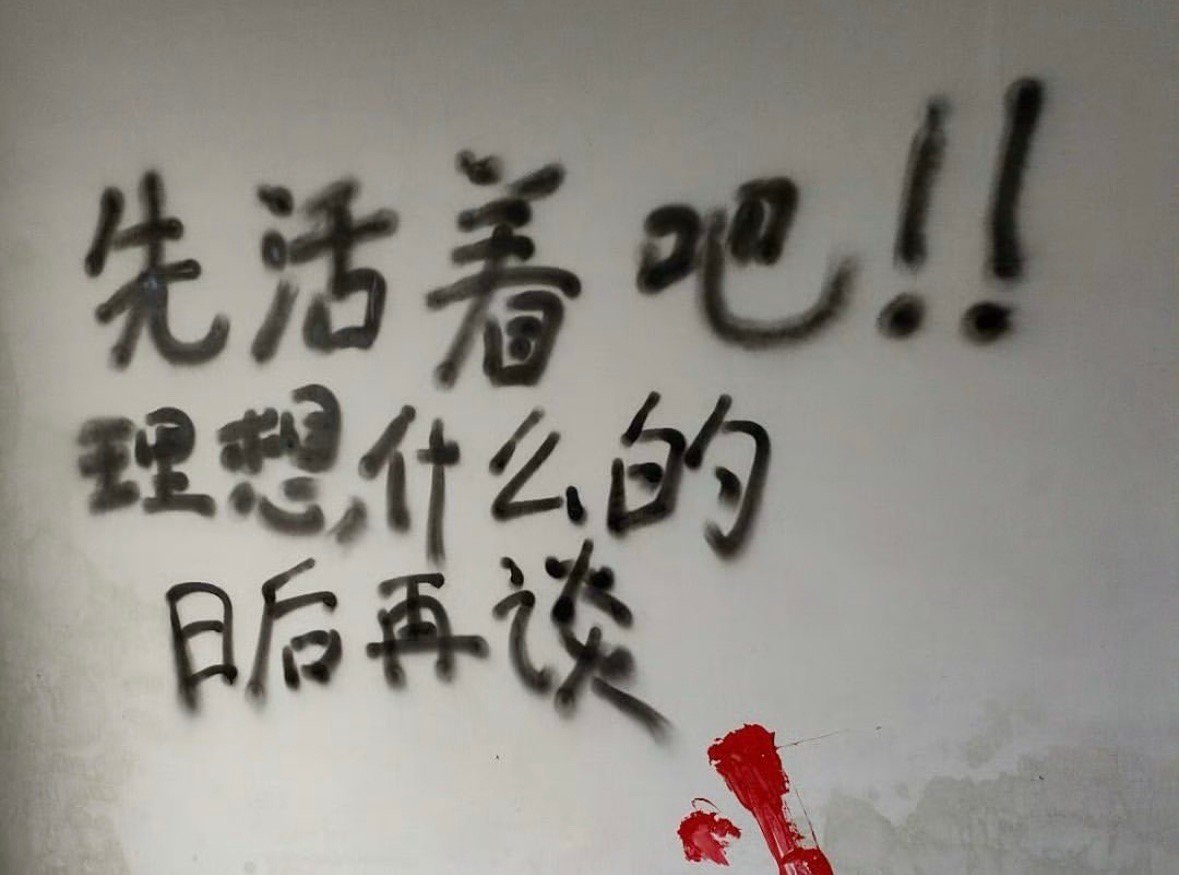 先活着吧!!
理想,什么的
日后再谈